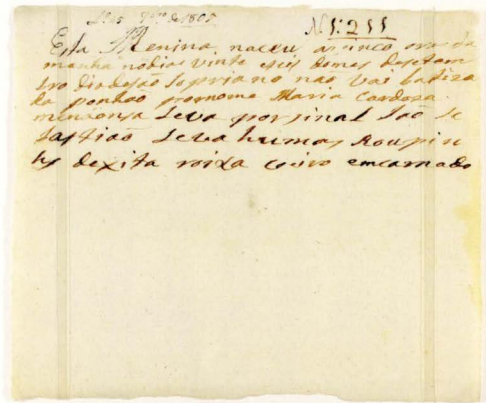 7bro de 1805
N. 1:255
Esta Menina naceu as sinco oras da
manha nodia vinte eseis domes desetem
bro diadesão sepriano não vai batiza
da ponhão pornome Maria Cardoza
mendonsa Leva porsinal São se
bastião Leva humas Roupin
has dexita roixa couro emcarnado